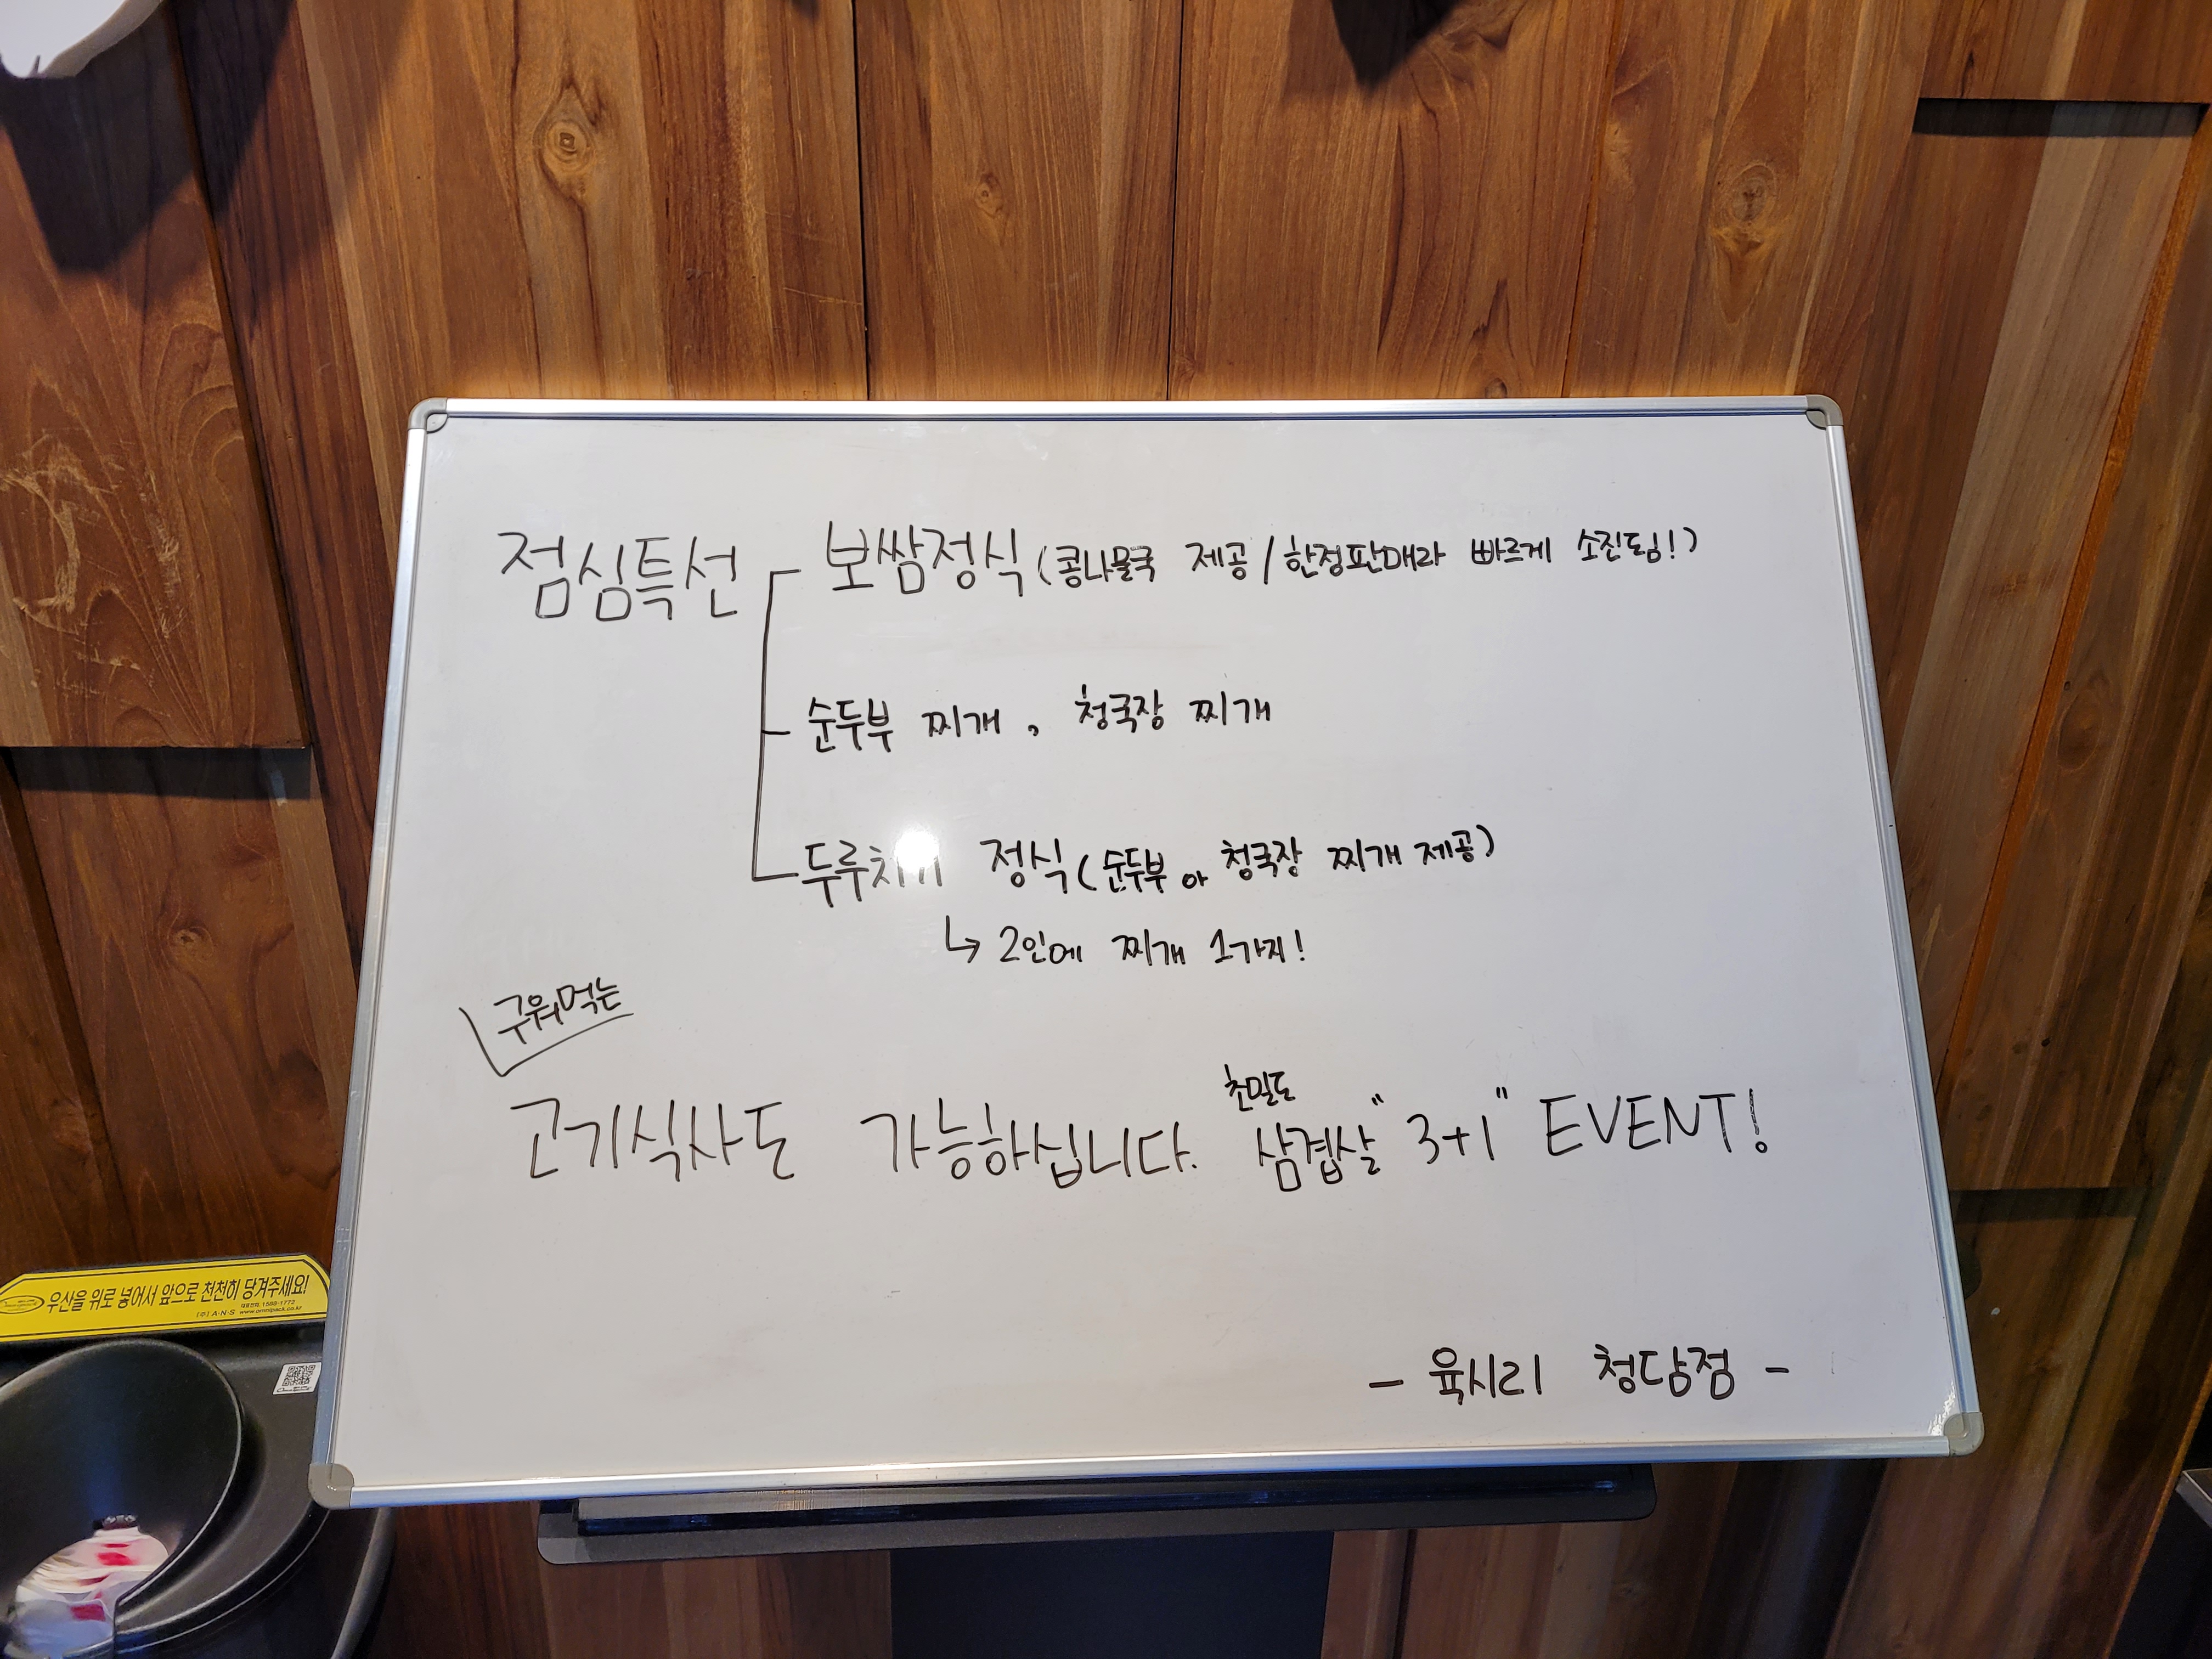 점심특선
보쌈정식 (콩나물국 제공 / 한정판매라 빠르게 소진됨!)
순두부 찌개, 청국장 찌개
두루치기 정식 (순두부 or 청국장 찌개 제공)
↳ 2인에 찌개 1가지!
구워먹는
고기식사도 가능하십니다. 초밀도 삼겹살 "3+1" EVENT!
- 육시리 청담점 -
우산을 위로 넣어서 앞으로 천천히 당겨주세요!
대표전화. 1588-1772
(주) A·N·S www.omnipack.co.kr